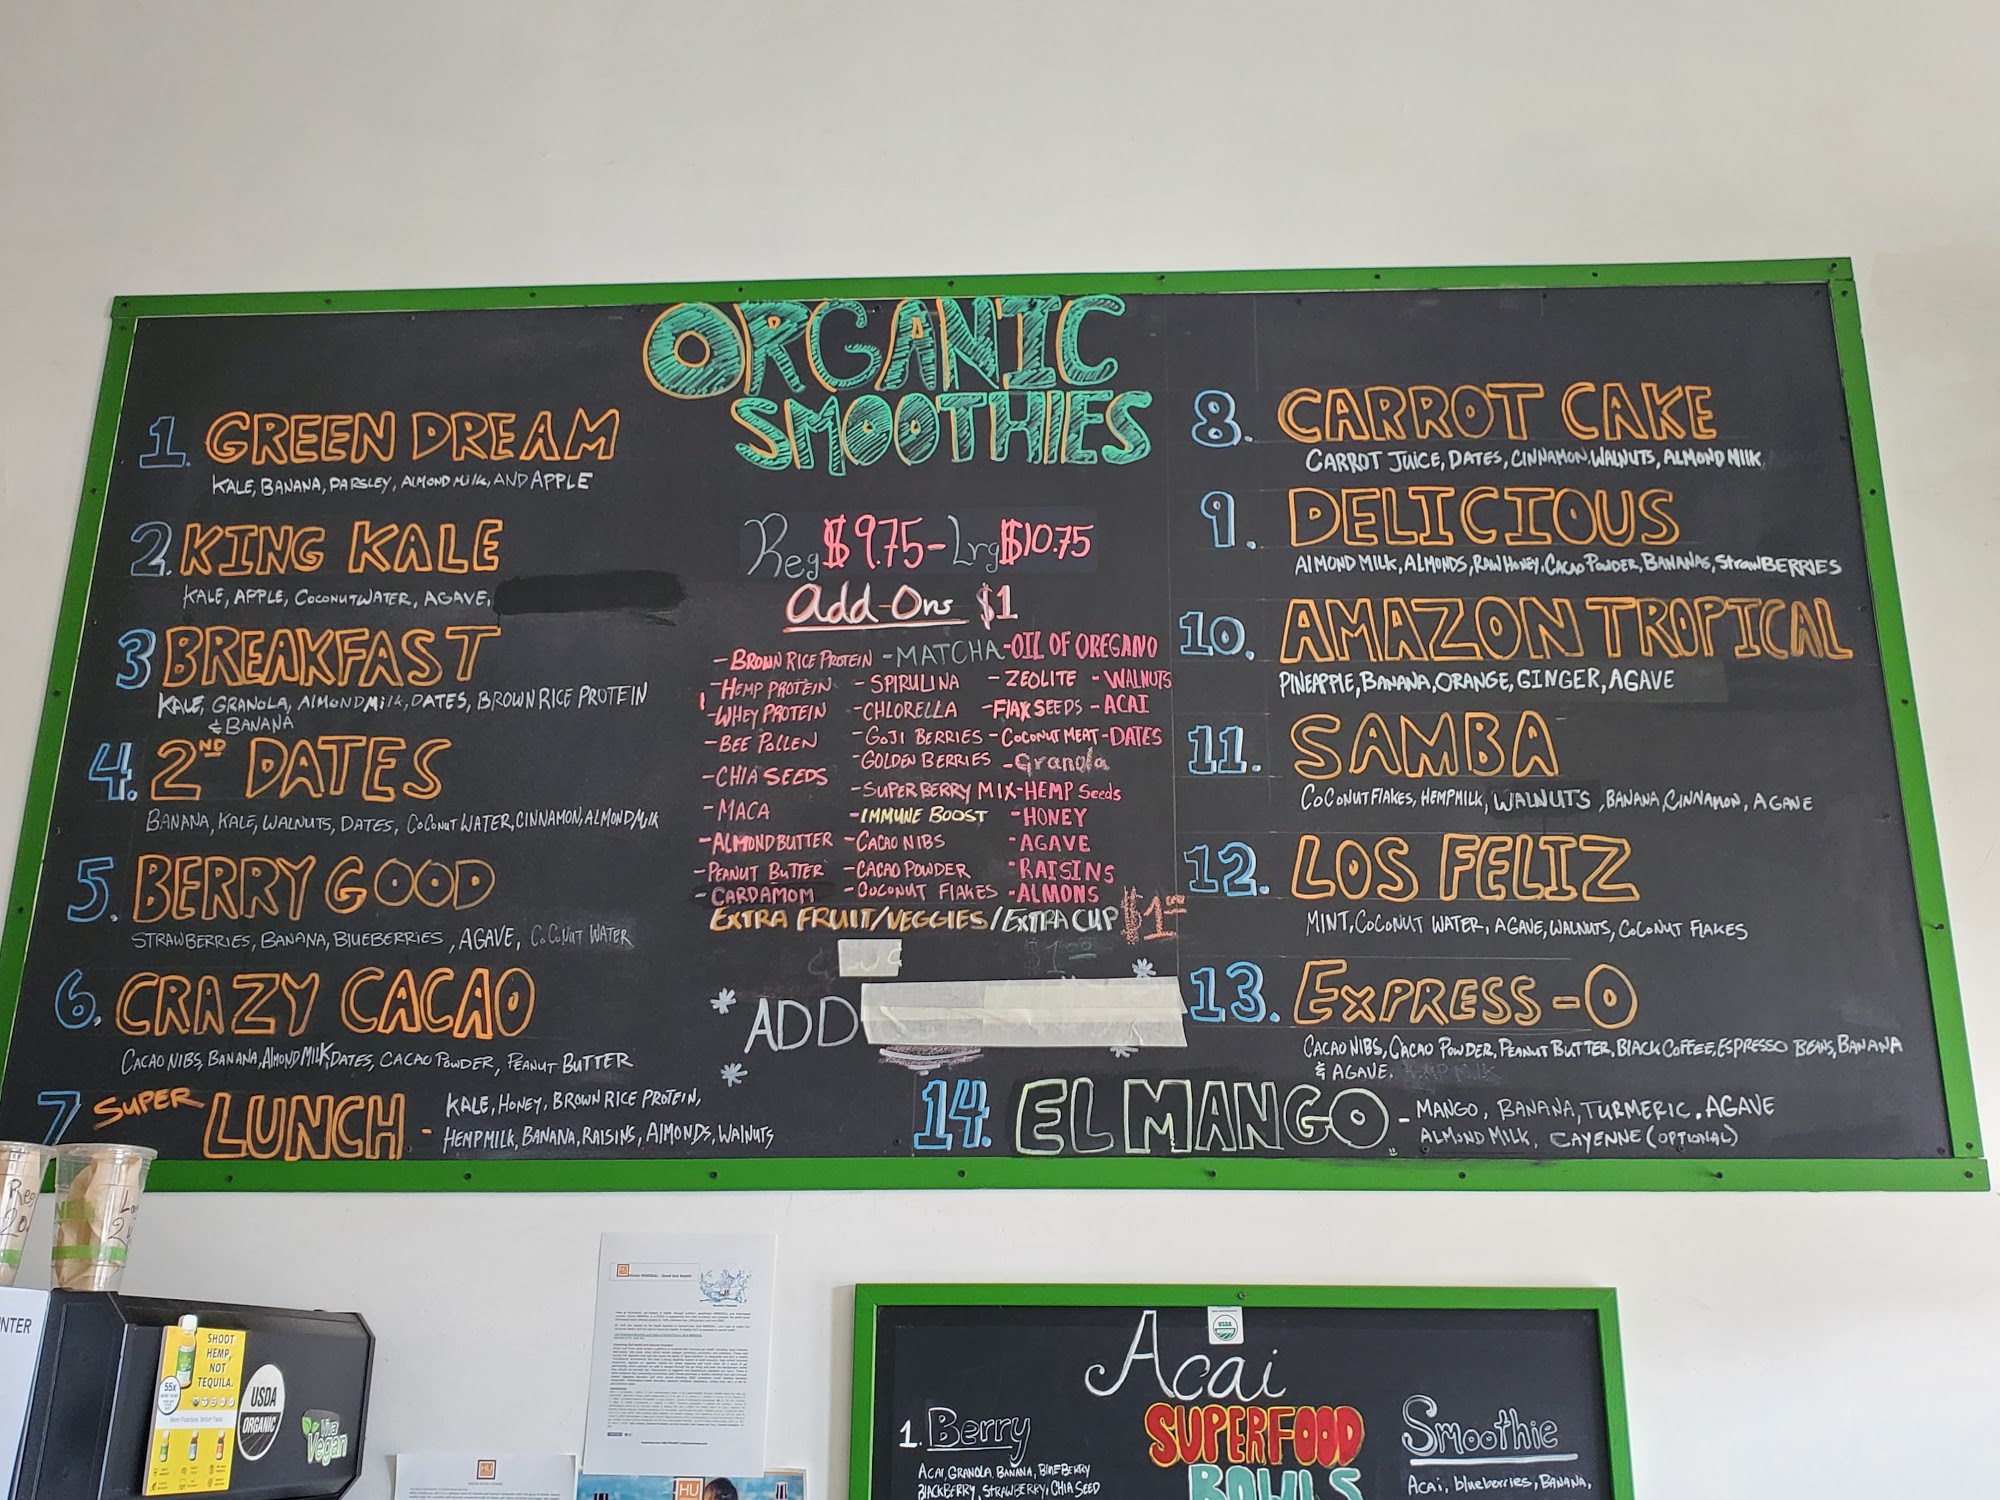 ORGANIC
SMOOTHIES
1. GREEN DREAM
KALE, BANANA, PARSLEY, ALMOND MILK, AND APPLE
2. KING KALE
KALE, APPLE, COCONUT WATER, AGAVE,
3 BREAKFAST
KALE, GRANOLA, ALMOND MILK, DATES, BROWN RICE PROTEIN
& BANANA
4. 2ND DATES
BANANA, KALE, WALNUTS, DATES, COCONUT WATER, CINNAMON, ALMOND MILK
5. BERRY GOOD
STRAWBERRIES, BANANA, BLUEBERRIES, AGAVE, COCONUT WATER
6. CRAZY CACAO
CACAO NIBS, BANANA, ALMOND MILK, DATES, CACAO POWDER, PEANUT BUTTER
7 SUPER LUNCH -
KALE, HONEY, BROWN RICE PROTEIN,
HEMPMILK, BANANA, RAISINS, ALMONDS, WALNUTS
Reg $9.75 - Lrg $10.75
Add-Ons $1
- BROWN RICE PROTEIN - MATCHA - OIL OF OREGANO
- HEMP PROTEIN - SPIRULINA - ZEOLITE - WALNUTS
- WHEY PROTEIN - CHLORELLA - FLAX SEEDS - ACAI
- BEE POLLEN - GOJI BERRIES - COCONUT MEAT - DATES
- CHIA SEEDS - GOLDEN BERRIES - Granola
- MACA - SUPER BERRY MIX - HEMP Seeds
- ALMOND BUTTER - IMMUNE BOOST - HONEY
- PEANUT BUTTER - CACAO NIBS - AGAVE
- CARDAMOM - CACAO POWDER - RAISINS
- COCONUT FLAKES - ALMONS
EXTRA FRUIT/VEGGIES/EXTRA CUP $1
* ADD
8. CARROT CAKE
CARROT JUICE, DATES, CINNAMON, WALNUTS, ALMOND MILK
9. DELICIOUS
ALMOND MILK, ALMONDS, RAW HONEY, CACAO POWDER, BANANAS, STRAWBERRIES
10. AMAZON TROPICAL
PINEAPPLE, BANANA, ORANGE, GINGER, AGAVE
11. SAMBA
COCONUT FLAKES, HEMPMILK, WALNUTS, BANANA, CINNAMON, AGAVE
12. LOS FELIZ
MINT, COCONUT WATER, AGAVE, WALNUTS, COCONUT FLAKES
13. EXPRESS-O
CACAO NIBS, CACAO POWDER, PEANUT BUTTER, BLACK COFFEE, ESPRESSO BEANS, BANANA
& AGAVE.
14. EL MANGO -
MANGO, BANANA, TURMERIC, AGAVE
ALMOND MILK, CAYENNE (OPTIONAL)
Reg
SHOOT
HEMP,
NOT
TEQUILA.
55x
More Function, Better Taste.
USDA
ORGANIC
Viva
Vegan
HU
HU
Acai
USDA
SUPERFOOD
BOWLS
1. Berry
ACAI, GRANOLA, BANANA, BLUEBERRY
BLACKBERRY, STRAWBERRY, CHIA SEED
Smoothie
Acai, blueberries, BANANA,